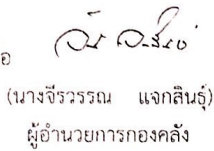 อ
(นางจีรวรรณ แจกสินธุ์)
ผู้อำนวยการกองคลัง